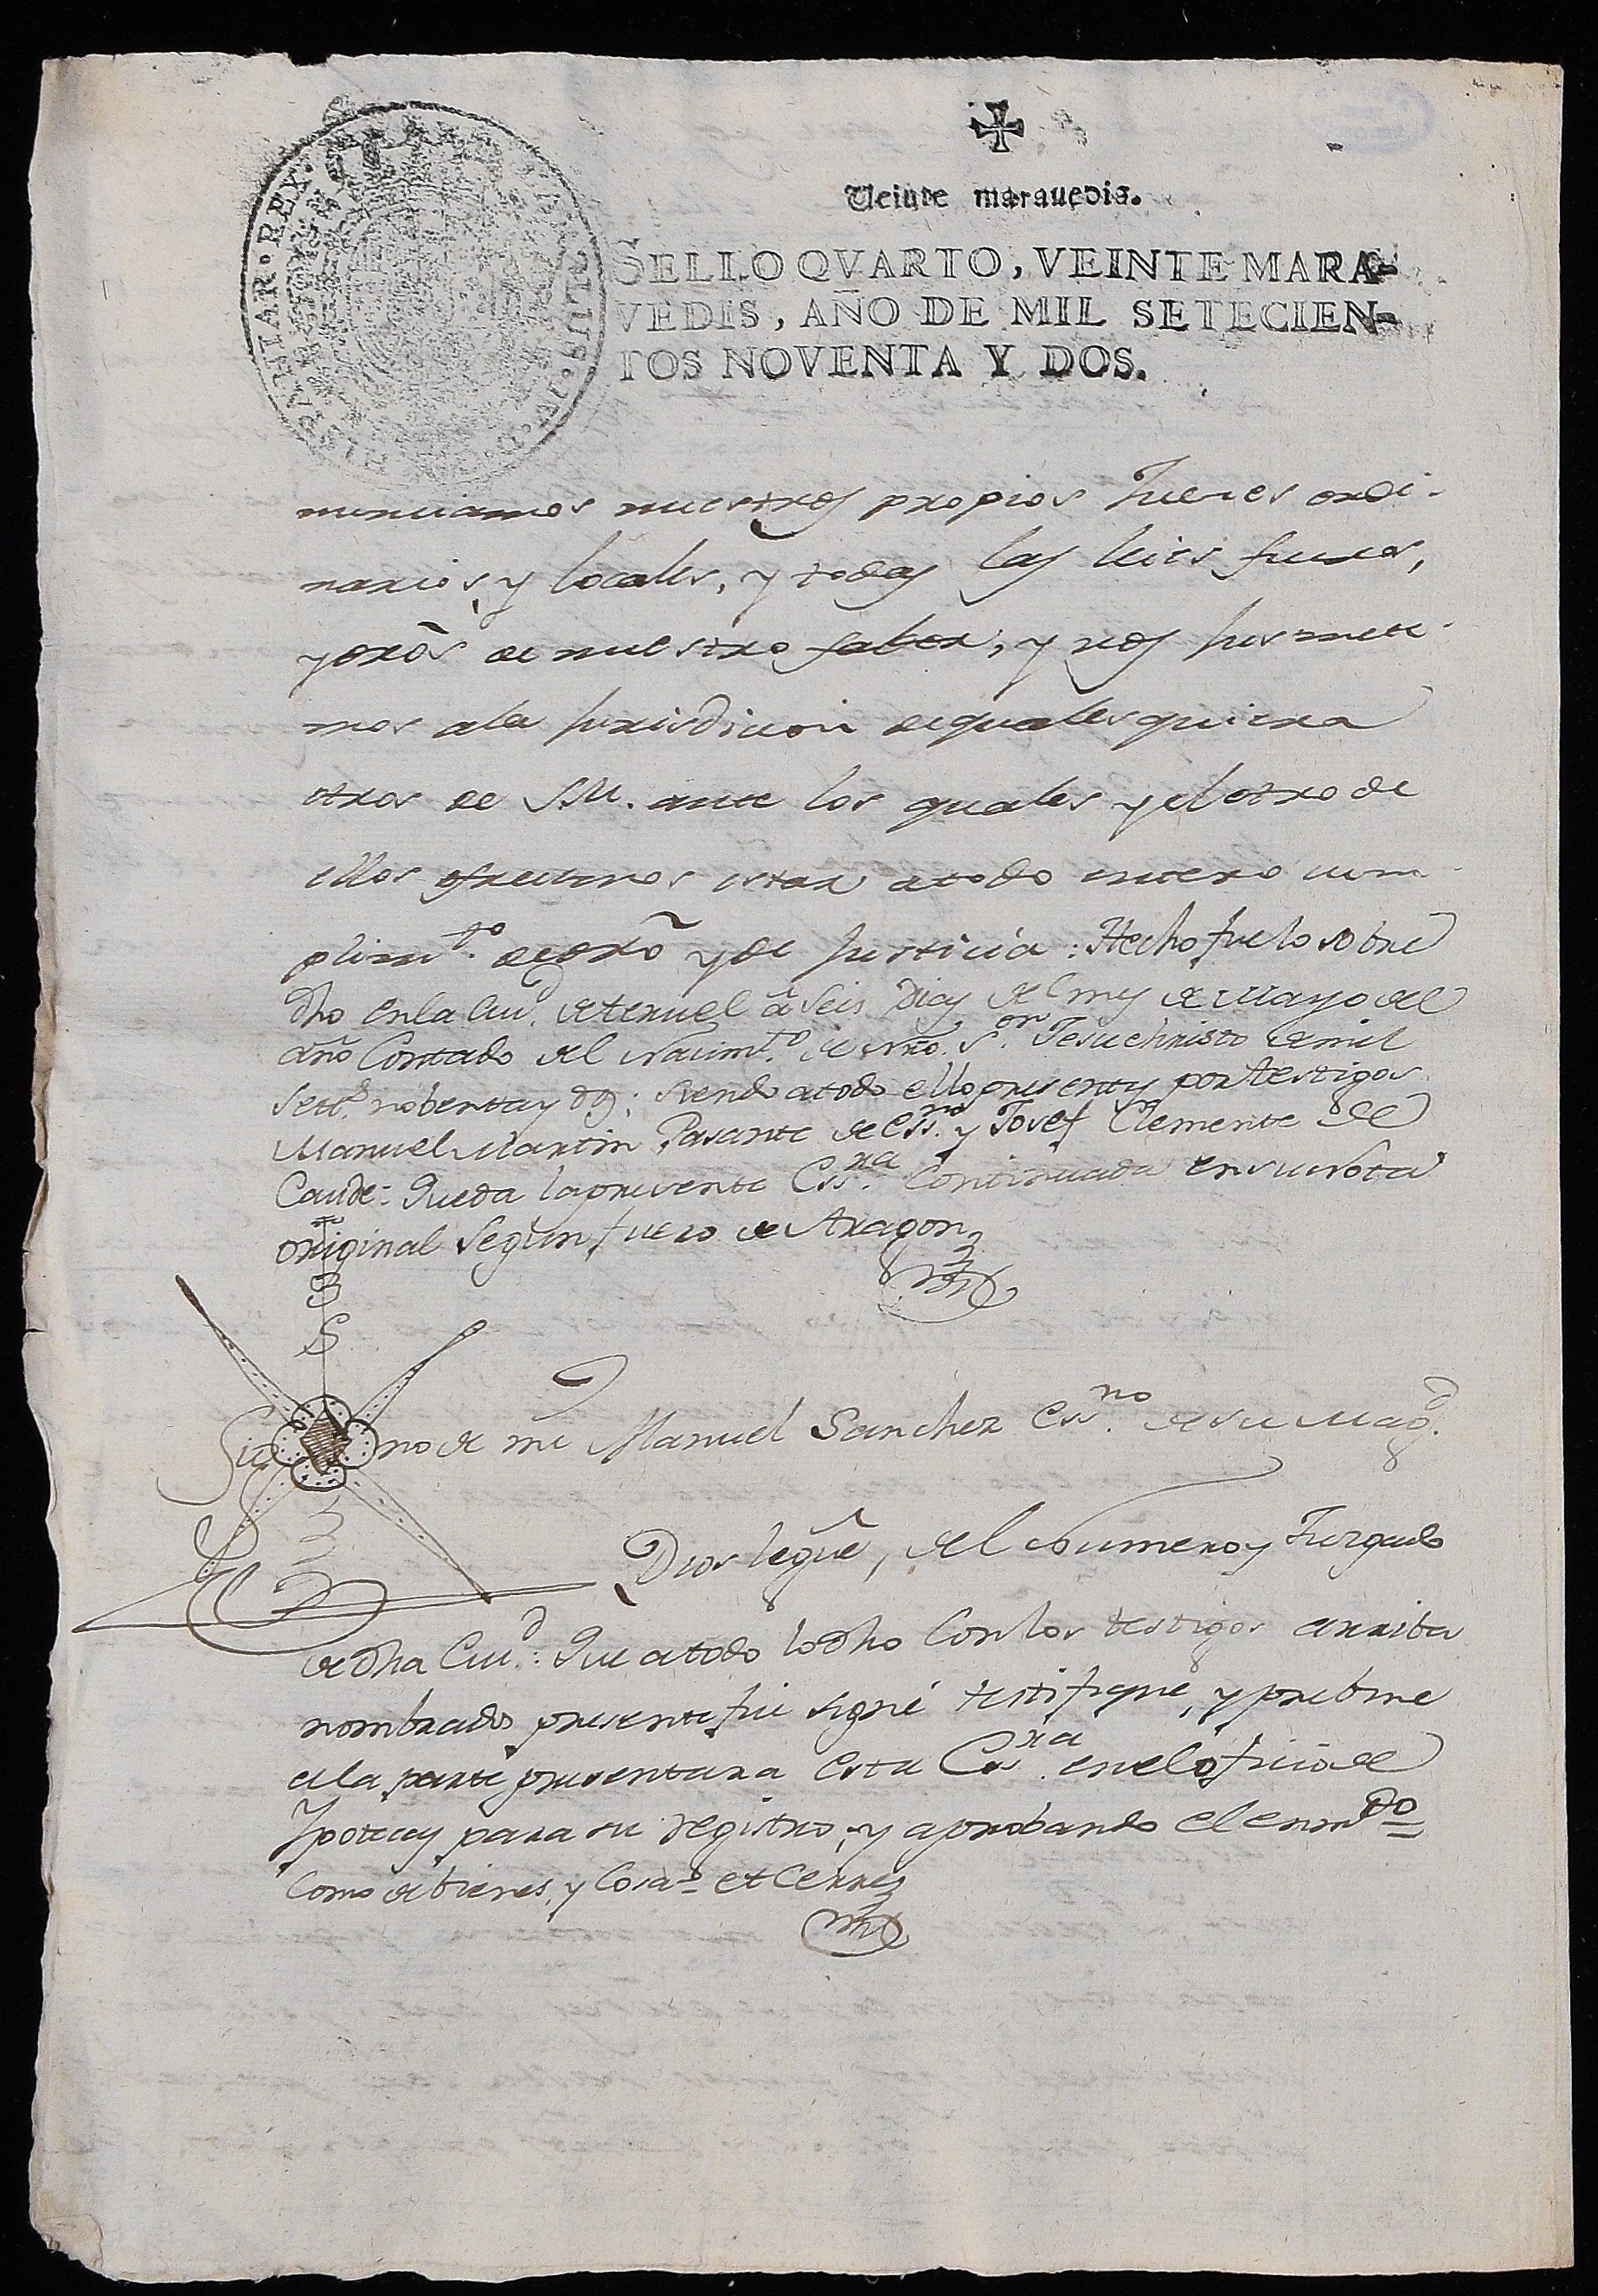 Veinte marauedis.
SELLO QVARTO, VEINTE MARA-
VEDIS, AÑO DE MIL SETECIEN-
TOS NOVENTA Y DOS.
HISPANIAR. REX.
nunciamos nuestros propios Jueces ordi-
narios, y locales, y todas las leies fueros,
y dros de nuestro fabor, y nos jusmete-
mos ala jurisdicion de qualesquiera
otros de S.M. ante los quales y el otro de
ellos ofrecemos estar a todo entero cum-
plimto. de dro y de Justicia: Hecho fue lo sobre
dho en la Ciud. de teruel â Seis Dias del mes de Mayo del
año Contado del Nacimto. de Nro. Sor. Jesuchristo de mil
settos. nobenta y dos: Siendo a todo ello presentes por testigos
Manuel Martin Pasante de Essno. y Josef Clemente de
Caude: Queda la presente Essra. Continuada en su nota
original Segun fuero de Aragon
Sig no de mi Manuel Sanchez Essno. de su Magd.
Dios legue, del Numero y Juzgado
de dha Ciud.: Que a todo lo dho Con los testigos arriba
nombrados presente fui signé testifique, y prebine
a la parte presentara esta Essra. en el oficio de
Ypotecas para su registro, y aprobando el enmdo
Como de bienes, y Cosas et Cerre